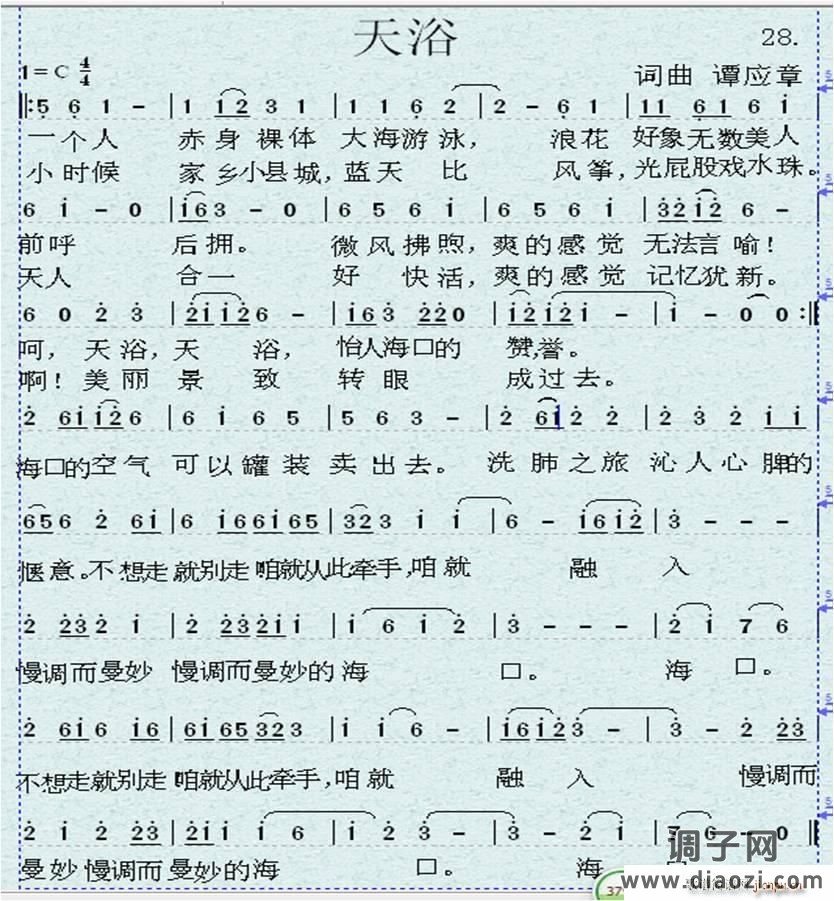 天浴
28.
1=C 4/4
词曲 谭应章
‖:5̣ 6̣ 1 - | 1 1̇2 3 1 | 1 1 6̣ 2 | 2 - 6̣ 1 | 11 6̣1 6 i
一个人 赤身裸体 大海游泳， 浪花 好象无数美人
小时候 家乡小县城，蓝天 比 风筝，光屁股戏水珠。
6 i - 0 | i63 - 0 | 6 5 6 i | 6 5 6 i | 3̇2̇ i2̇ 6 -
前呼 后拥。 微风拂煦，爽的感觉 无法言喻！
天人 合一 好 快活，爽的感觉 记忆犹新。
6 0 2̇ 3̇ | 2̇i i2̇6 - | i63̇ 2̇2̇0 | i2̇ i2̇i - | i - 0 0 :‖
呵，天浴，天 浴， 怡人海口的 赞，誉。
啊！美丽 景 致 转眼 成过去。
2̇ 6i i2̇6 | 6 i 6 5 | 5 6 3 - | 2̇ 6i 2̇ 2̇ | 2̇ 3̇ 2̇ i i
海口的空气 可以罐装 卖出去。 洗肺之旅 沁人心脾的
656 2̇ 6i | 6 i66i65 | 323 i i | 6 - i6i2̇ | 3̇ - - -
惬意。不想走就别走咱就从此牵手，咱就 融 入
2̇ 2̇3̇2̇ i | 2̇ 2̇3̇2̇i i | i 6 i 2̇ | 3̇ - - - | 2̇ i 7 6
慢调而曼妙 慢调而曼妙的海 口。 海 口。
2̇ 6i 6 i6 | 6i65323 | i i 6 - | i6i2̇3̇ - | 3̇ - 2̇ 2̇3̇
不想走就别走 咱就从此牵手，咱就 融 入 慢调而
2̇ i 2̇ 2̇3̇ | 2̇i i i 6 | i 2̇ 3̇ - | 3̇ - 2̇ i | 7 6 - 0 ‖
曼妙 慢调而曼妙的海 口。 海
调子网
www.diaozi.com
37